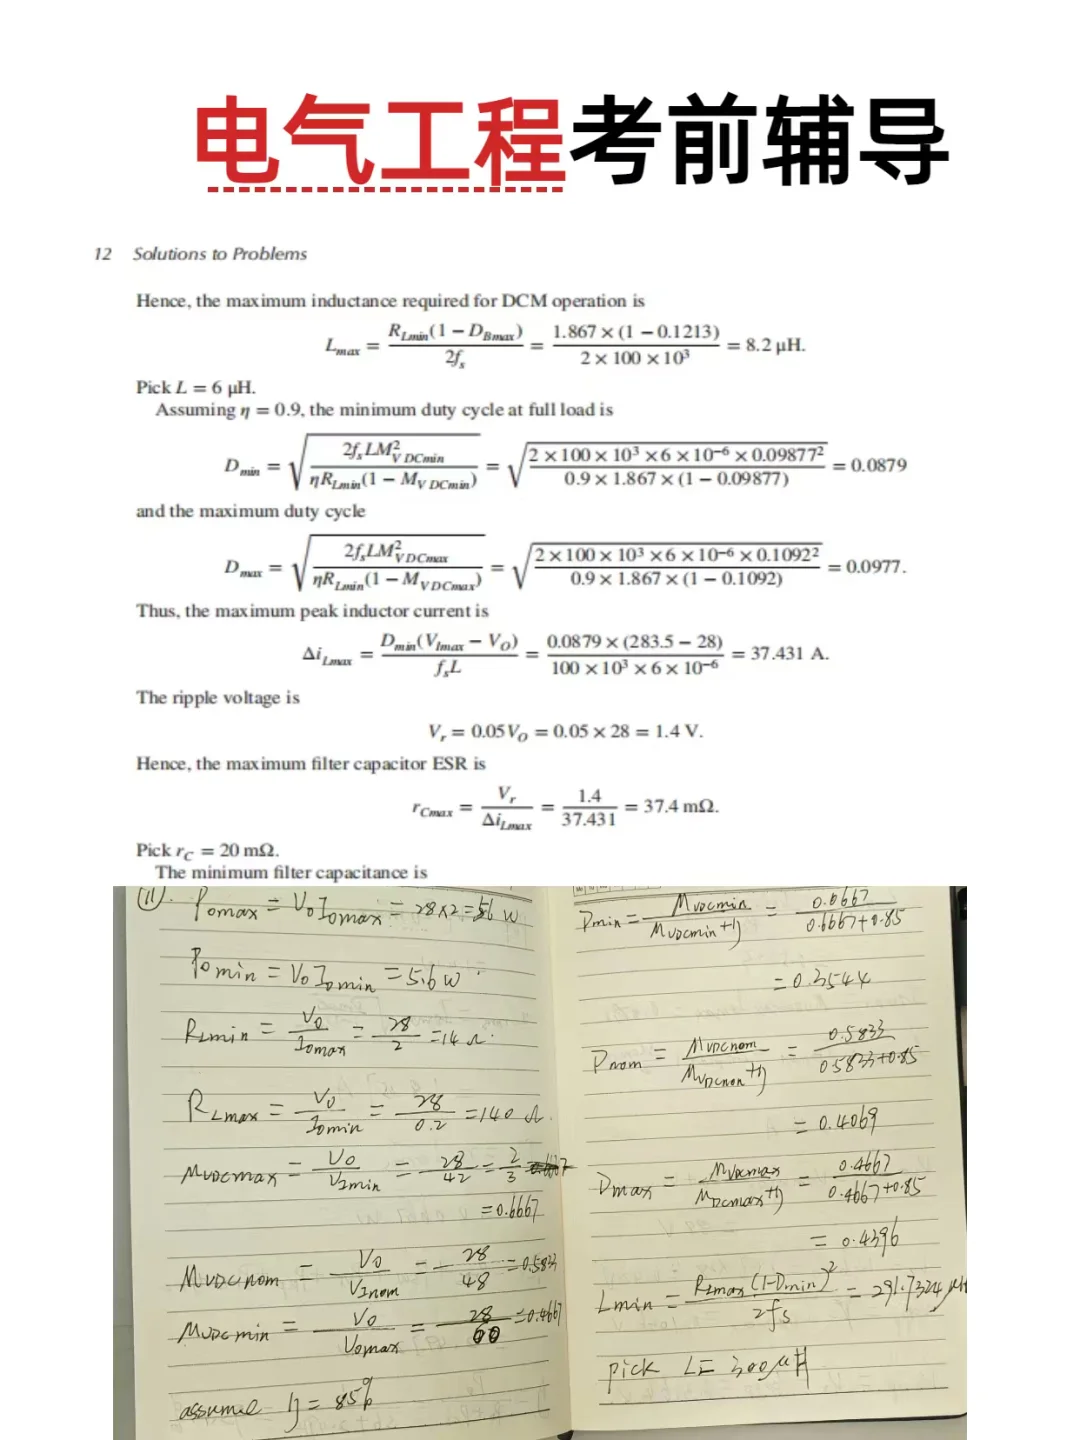 电气工程考前辅导
12 Solutions to Problems
Hence, the maximum inductance required for DCM operation is
L_max = R_Lmin(1 − D_Bmax) / 2f_s = 1.867 × (1 − 0.1213) / 2 × 100 × 10³ = 8.2 μH.
Pick L = 6 μH.
Assuming η = 0.9, the minimum duty cycle at full load is
D_min = √(2f_s L M²_V DCmin / ηR_Lmin(1 − M_V DCmin)) = √(2 × 100 × 10³ × 6 × 10⁻⁶ × 0.09877² / 0.9 × 1.867 × (1 − 0.09877)) = 0.0879
and the maximum duty cycle
D_max = √(2f_s L M²_V DCmax / ηR_Lmin(1 − M_V DCmax)) = √(2 × 100 × 10³ × 6 × 10⁻⁶ × 0.1092² / 0.9 × 1.867 × (1 − 0.1092)) = 0.0977.
Thus, the maximum peak inductor current is
Δi_Lmax = D_min(V_Imax − V_O) / f_s L = 0.0879 × (283.5 − 28) / 100 × 10³ × 6 × 10⁻⁶ = 37.431 A.
The ripple voltage is
V_r = 0.05V_O = 0.05 × 28 = 1.4 V.
Hence, the maximum filter capacitor ESR is
r_Cmax = V_r / Δi_Lmax = 1.4 / 37.431 = 37.4 mΩ.
Pick r_C = 20 mΩ.
The minimum filter capacitance is
(11). Pomax = VoIomax = 28×2=56 w
Pomin = VoIomin = 5.6 w
RLmin = Vo / Iomax = 28 / 2 = 14 Ω.
RLmax = Vo / Iomin = 28 / 0.2 = 140 Ω.
MVDCmax = Vo / VImin = 28 / 42 = 2 / 3
= 0.6667
MVDCnom = Vo / VInom = 28 / 48 = 0.5833
MVDCmin = Vo / Vomax = 28 / 60 = 0.4667
assume η = 85%
Dmin = MVDCmin / MVDCmin+η = 0.6667 / 0.6667+0.85
= 0.3544
Dnom = MVDCnom / MVDCnom+η = 0.5833 / 0.5833+0.85
= 0.4069
Dmax = MVDCmax / MDCmax+η = 0.4667 / 0.4667+0.85
= 0.4396
Lmin = RLmax(1-Dmin)² / 2fs = 291.7324 μH
pick L= 300 μH